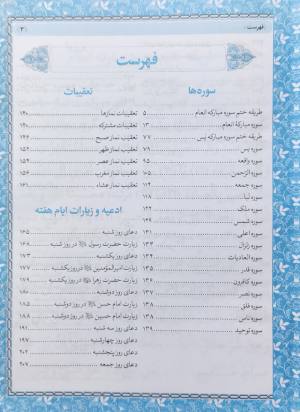 فهرست
۳
فهرست
سوره‌ها
طریقه ختم سوره مبارکه انعام ۵
سوره مبارکه انعام ۱۳
طریقه ختم سوره مبارکه یس ۷۷
سوره یس ۷۹
سوره واقعه ۹۵
سوره الرّحمن ۱۰۵
سوره جمعه ۱۱۴
سوره نبا ۱۱۸
سوره ملک ۱۲۲
سوره شمس
سوره اعلی ۱۳۱
سوره زلزال ۱۳۲
سوره العادیات ۱۳۳
سوره قدر ۱۳۵
سوره کافرون ۱۳۶
سوره نصر ۱۳۷
سوره فلق ۱۳۸
سوره ناس ۱۳۸
سوره توحید ۱۳۹
تعقیبات
تعقیبات نمازها ۱۴۰
تعقیبات مشترکه ۱۴۰
تعقیب نماز صبح ۱۴۶
تعقیب نماز ظهر ۱۵۲
تعقیب نماز عصر ۱۵۴
تعقیب نماز مغرب ۱۵۶
تعقیب نماز عشاء ۱۶۱
ادعیه و زیارات ایام هفته
دعای روز شنبه ۱۶۵
زیارت حضرت رسول ﷺ در روز شنبه ۱۶۸
دعای روز یکشنبه ۱۷۳
زیارت امیرالمؤمنین در روز یکشنبه ۱۷۷
زیارت حضرت زهرا در روز یکشنبه ۱۷۹
دعای روز دوشنبه ۱۸۰
زیارت امام حسن در روز دوشنبه ۱۸۵
زیارت امام حسین در روز دوشنبه ۱۸۸
دعای روز سه شنبه ۱۹۱
دعای روز چهارشنبه ۱۹۷
دعای روز پنجشنبه ۲۰۲
دعای روز جمعه ۲۰۷